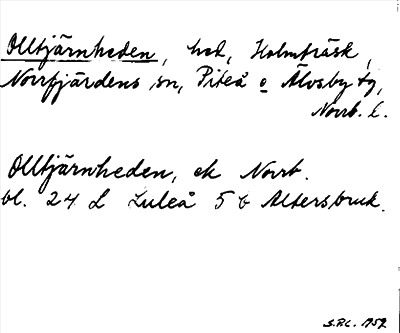 Olltjärnheden, hed, Holmträsk,
Norrfjärdens sn, Piteå o Älvsby tg,
Norrb. l.
Olltjärnheden, ek Norrb.
bl. 24 L Luleå 5 b Altersbruk.
1959